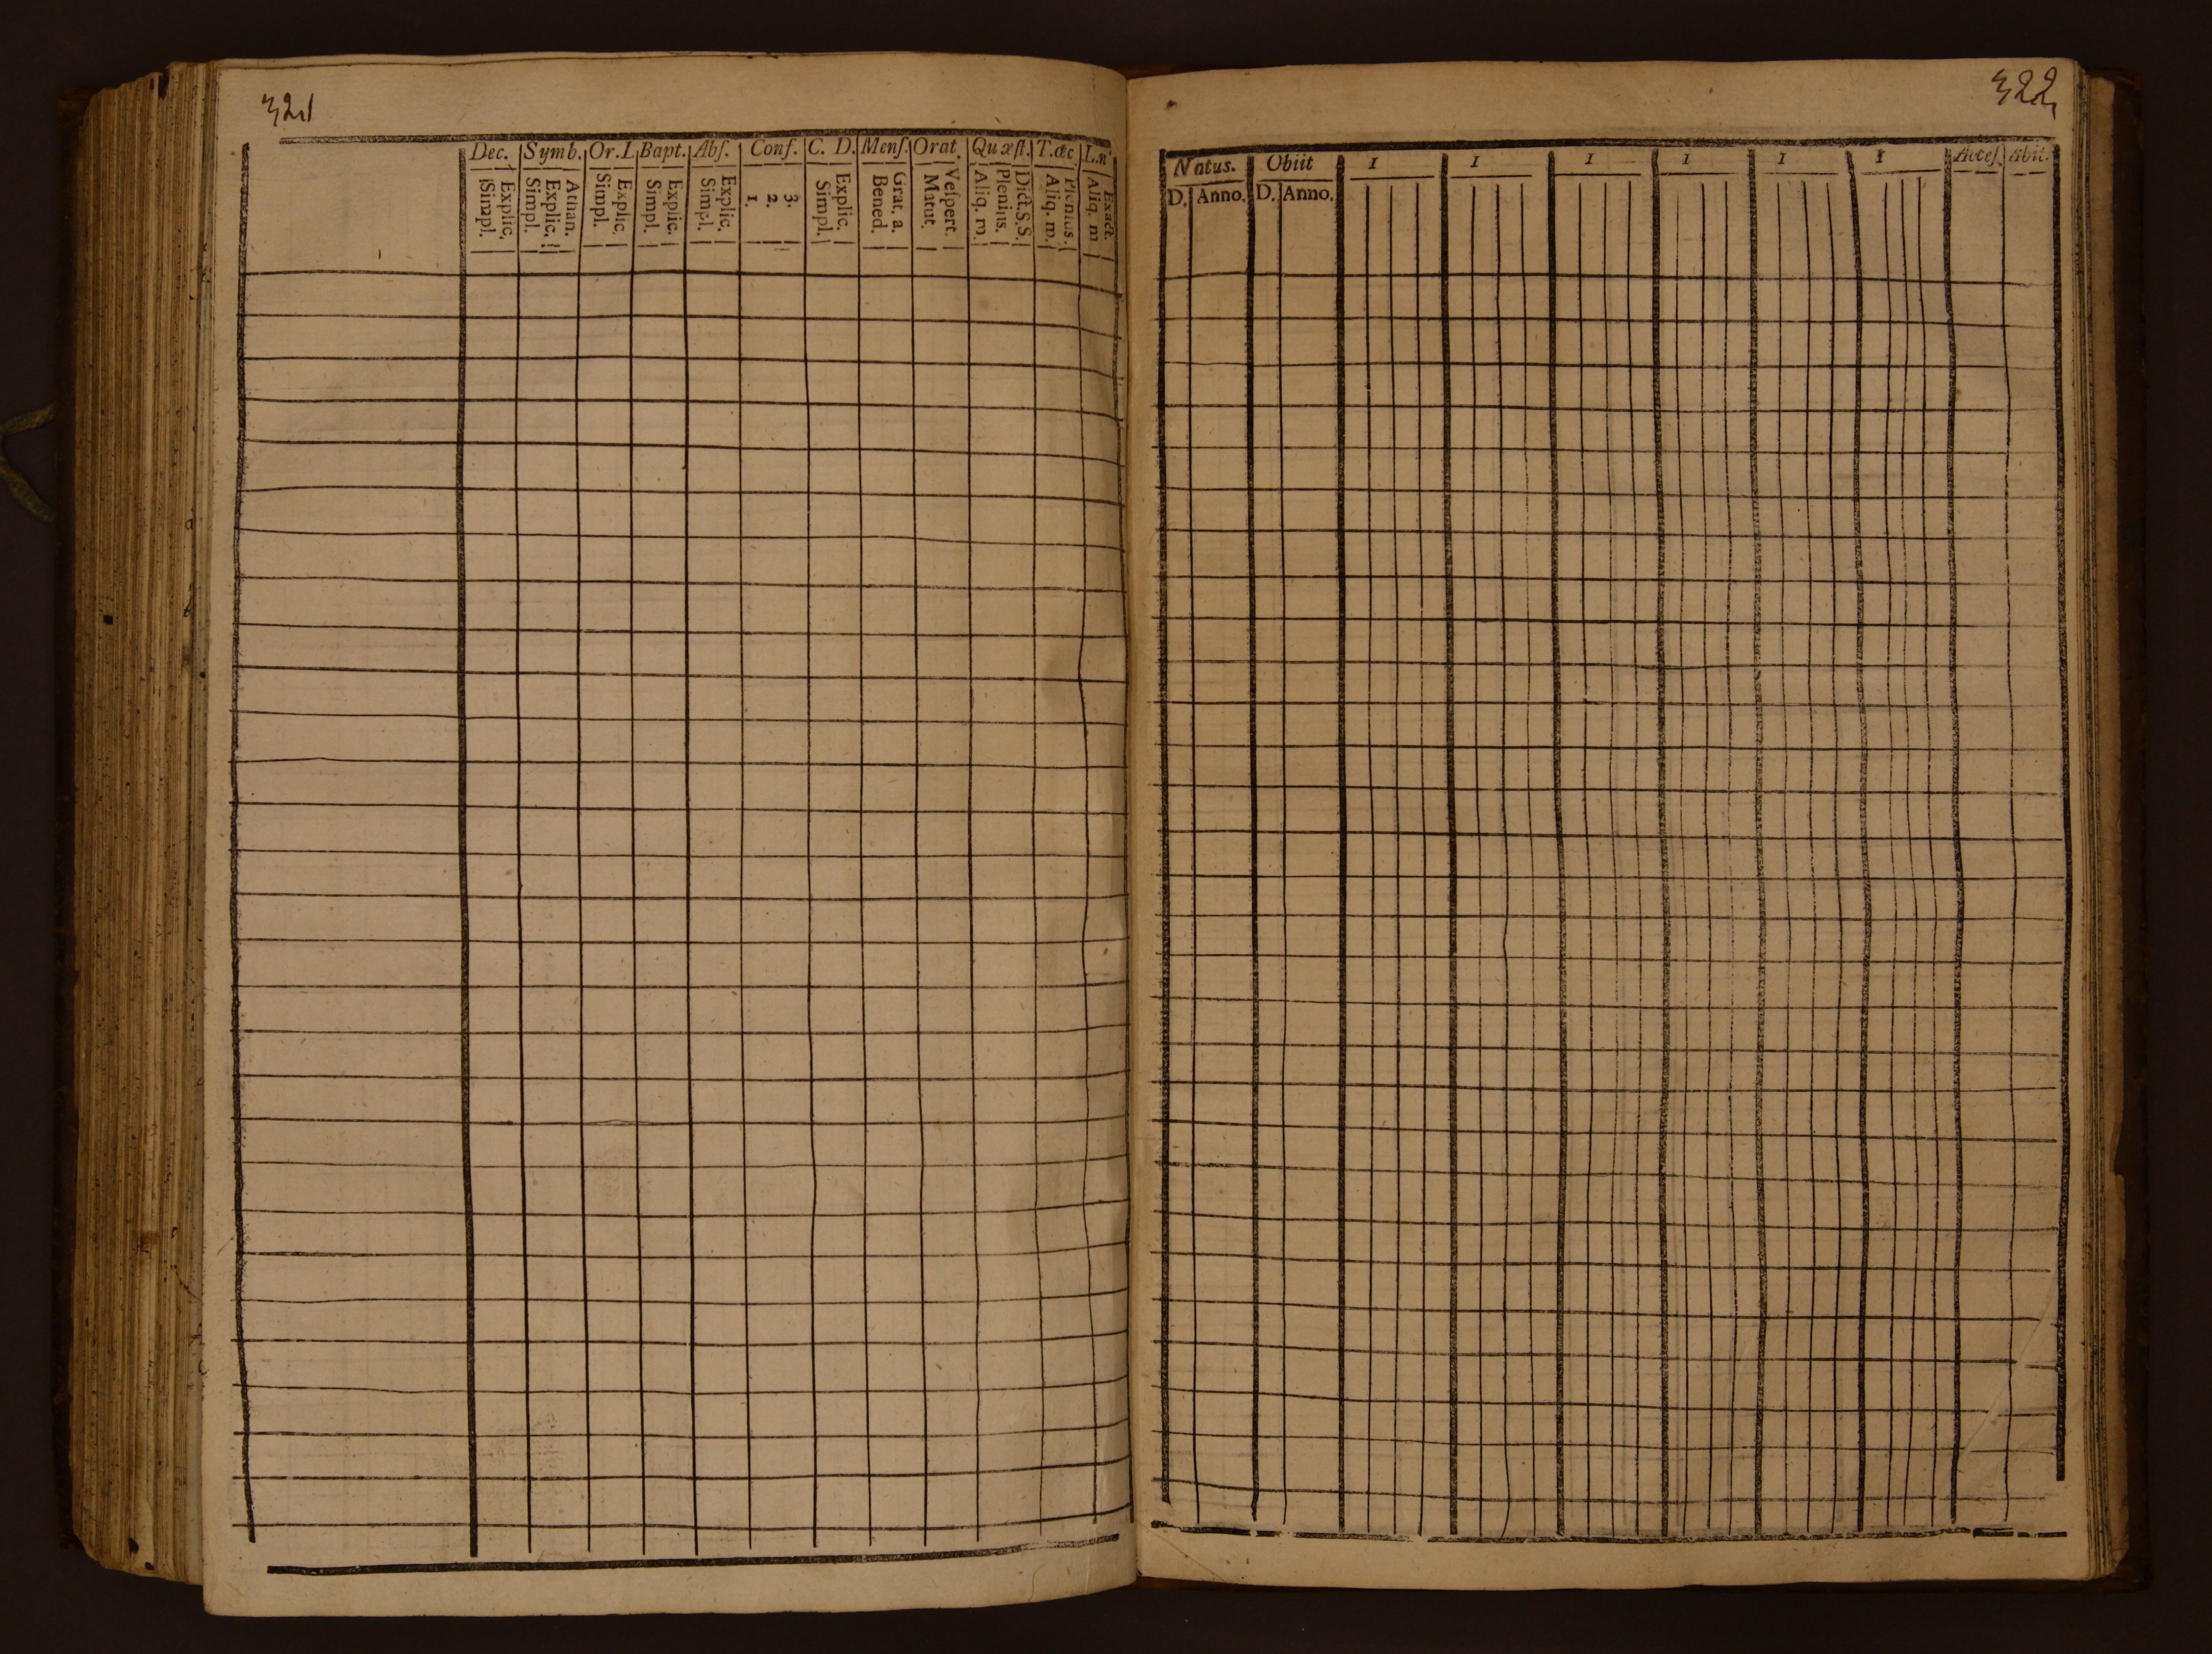 321
Dec. Symb. Or. L Bapt. Abſ. Conf. C. D. Menſ. Orat. Quæſt. T. œc L. n
Explic. Simpl.
Athan. Explic. Simpl.
Explic. Simpl.
Explic. Simpl.
Explic. Simpl.
3. 2. 1.
Explic. Simpl.
Grat. a. Bened.
Veſpert. Matut.
Dict. S. S. Plenius. Aliq. m.
Plenius. Aliq. m.
Exact. Aliq. m
322
Natus. Obiit I I I I I I Acceſ. Abit.
D. Anno. D. Anno.